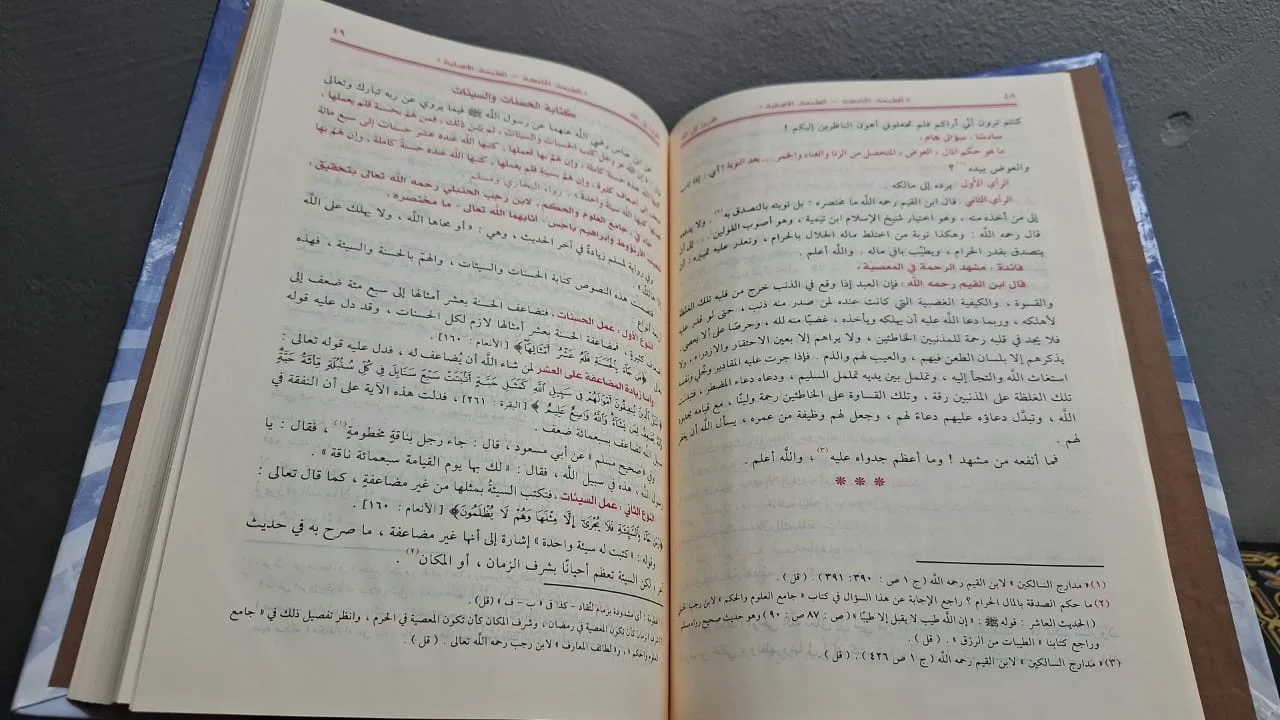 ٤٨
« الطبعة الخامسة – الطبعة الأصلية »
كنتم ترون أني أراكم فلم تجعلوني أهون الناظرين إليكم !
سادسًا : سؤال هام .
ما هو حكم المال ، العوض ، المتحصل من الزنا والغناء والخمر ... بعد التوبة ؟ أي : إذا تاب
والعوض بيده ؟
الرأي الأول : يرده إلى مالكه .
الرأي الثاني : قال ابن القيم رحمه الله ما مختصره : بل توبته بالتصدق به ، ولا يدفعه
إلى من أخذه منه ، وهو اختيار شيخ الإسلام ابن تيمية ، وهو أصوب القولين ...
قال رحمه الله : وهكذا توبة من اختلط ماله الحلال بالحرام ، وتعذر عليه تمييزه : أن
يتصدق بقدر الحرام ، ويطيِّب باقي ماله . والله أعلم .
فائدة : مشهد الرحمة في المعصية :
قال ابن القيم رحمه الله : فإن العبد إذا وقع في الذنب خرج من قلبه تلك الغلظة
والقسوة ، والكيفية الغضبية التي كانت عنده لمن صدر منه ذنب ، حتى لو قدر عليه
لأهلكه ، وربما دعا الله عليه أن يهلكه ويأخذه ، غضبًا منه لله ، وحرصًا على ألا يعصى .
فلا يجد في قلبه رحمة للمذنبين الخاطئين ، ولا يراهم إلا بعين الاحتقار والازدراء ، ولا
يذكرهم إلا بلسان الطعن فيهم ، والعيب لهم والذم . فإذا جرت عليه المقادير وخُلي ونفسه
استغاث الله والتجأ إليه ، وتململ بين يديه تململ السليم ، ودعاه دعاء المضطر ، فتبدلت
تلك الغلظة على المذنبين رقة ، وتلك القساوة على الخاطئين رحمة ولينًا ، مع قيامه بحدود
الله ، وتبدَّل دعاؤه عليهم دعاءً لهم ، وجعل لهم وظيفة من عمره ، يسأل الله أن يغفر
لهم .
فما أنفعه من مشهد ! وما أعظم جدواه عليه (٣) ، والله أعلم .
(١) « مدارج السالكين » لابن القيم رحمه الله (ج ١ ص : ٣٩٠: ٣٩١) . ( قل ) .
(٢) ما حكم الصدقة بالمال الحرام ؟ راجع الإجابة عن هذا السؤال في كتاب « جامع العلوم والحكم » لابن رجب
(الحديث العاشر : قوله ﷺ : « إن الله طيب لا يقبل إلا طيبًا » (ص : ٨٧ ص : ٩٠) وهو حديث صحيح رواه مسلم
وراجع كتابنا « الطيبات من الرزق » . ( قل ) .
(٣) « مدارج السالكين » لابن القيم رحمه الله (ج ١ ص ٤٢٦) . ( قل ) .
٤٩
« الطبعة الخامسة – الطبعة الأصلية »
كتابة الحسنات والسيئات
عن ابن عباس رضي الله عنهما عن رسول الله ﷺ فيما يروي عن ربه تبارك وتعالى
الله عز وجل كتب الحسنات والسيئات ، ثم بيَّن ذلك ، فمن همَّ بحسنة فلم يعملها ،
الله عنده حسنة كاملة ، وإن همَّ بها فعملها ، كتبها الله عنده عشر حسنات إلى سبع مائة
ضعف إلى أضعاف كثيرة ، وإن همَّ بسيئة فلم يعملها ، كتبها الله عنده حسنة كاملة ، وإن همَّ بها
فعملها كتبها الله سيئة واحدة » . رواه البخاري ومسلم
جاء في « جامع العلوم والحكم » لابن رجب الحنبلي رحمه الله تعالى بتحقيق :
شعيب الأرنؤوط وإبراهيم باجس ، أثابهما الله تعالى . ما مختصره :
وفي رواية لمسلم زيادةٌ في آخر الحديث ، وهي : « أو محاها الله ، ولا يهلك على الله
إلا هالك » .
فتضمنت هذه النصوص كتابة الحسنات والسيئات ، والهمّ بالحسنة والسيئة ، فهذه
أربعة أنواع :
النوع الأول : عمل الحسنات ، فتضاعف الحسنة بعشر أمثالها إلى سبع مئة ضعف إلى
أضعاف كثيرة ، فمضاعفة الحسنة بعشر أمثالها لازم لكل الحسنات ، وقد دل عليه قوله
تعالى : ﴿مَن جَآءَ بِٱلْحَسَنَةِ فَلَهُۥ عَشْرُ أَمْثَالِهَا﴾ [ الأنعام : ١٦٠ ] .
وأما زيادة المضاعفة على العشر لمن شاء الله أن يُضاعف له ، فدل عليه قوله تعالى :
﴿مَّثَلُ ٱلَّذِينَ يُنفِقُونَ أَمْوَٰلَهُمْ فِى سَبِيلِ ٱللَّهِ كَمَثَلِ حَبَّةٍ أَنۢبَتَتْ سَبْعَ سَنَابِلَ فِى كُلِّ سُنۢبُلَةٍ مِّا۟ئَةُ حَبَّةٍ
وَٱللَّهُ يُضَٰعِفُ لِمَن يَشَآءُ وَٱللَّهُ وَٰسِعٌ عَلِيمٌ ﴾ [ البقرة : ٢٦١ ] ، فدلت هذه الآية على أن النفقة في
سبيل الله تضاعف بسبعمائة ضعف .
وفي « صحيح مسلم » عن أبي مسعود ، قال : جاء رجل بناقةٍ مخطومةٍ (١) ، فقال : يا
رسول الله ، هذه في سبيل الله ، فقال : « لك بها يوم القيامة سبعمائة ناقة » .
النوع الثاني : عمل السيئات ، فتكتب السيئةُ بمثلها من غير مضاعفةٍ ، كما قال تعالى :
﴿وَمَن جَآءَ بِٱلسَّيِّئَةِ فَلَا يُجْزَىٰٓ إِلَّا مِثْلَهَا وَهُمْ لَا يُظْلَمُونَ﴾ [ الأنعام : ١٦٠ ] .
وقوله : « كتبت له سيئة واحدة » إشارة إلى أنها غير مضاعفة ، ما صرح به في حديث
، لكن السيئة تعظم أحيانًا بشرف الزمان ، أو المكان (٢)
أي مشدودة بزمام لتُقاد - كذا في « ب – ف » (قل) .
كأن تكون المعصية في رمضان ، وشرف المكان كأن تكون المعصية في الحرم ، وانظر تفصيل ذلك في « جامع
العلوم والحكم » ، و« لطائف المعارف » لابن رجب رحمه الله تعالى . ( قل ) .